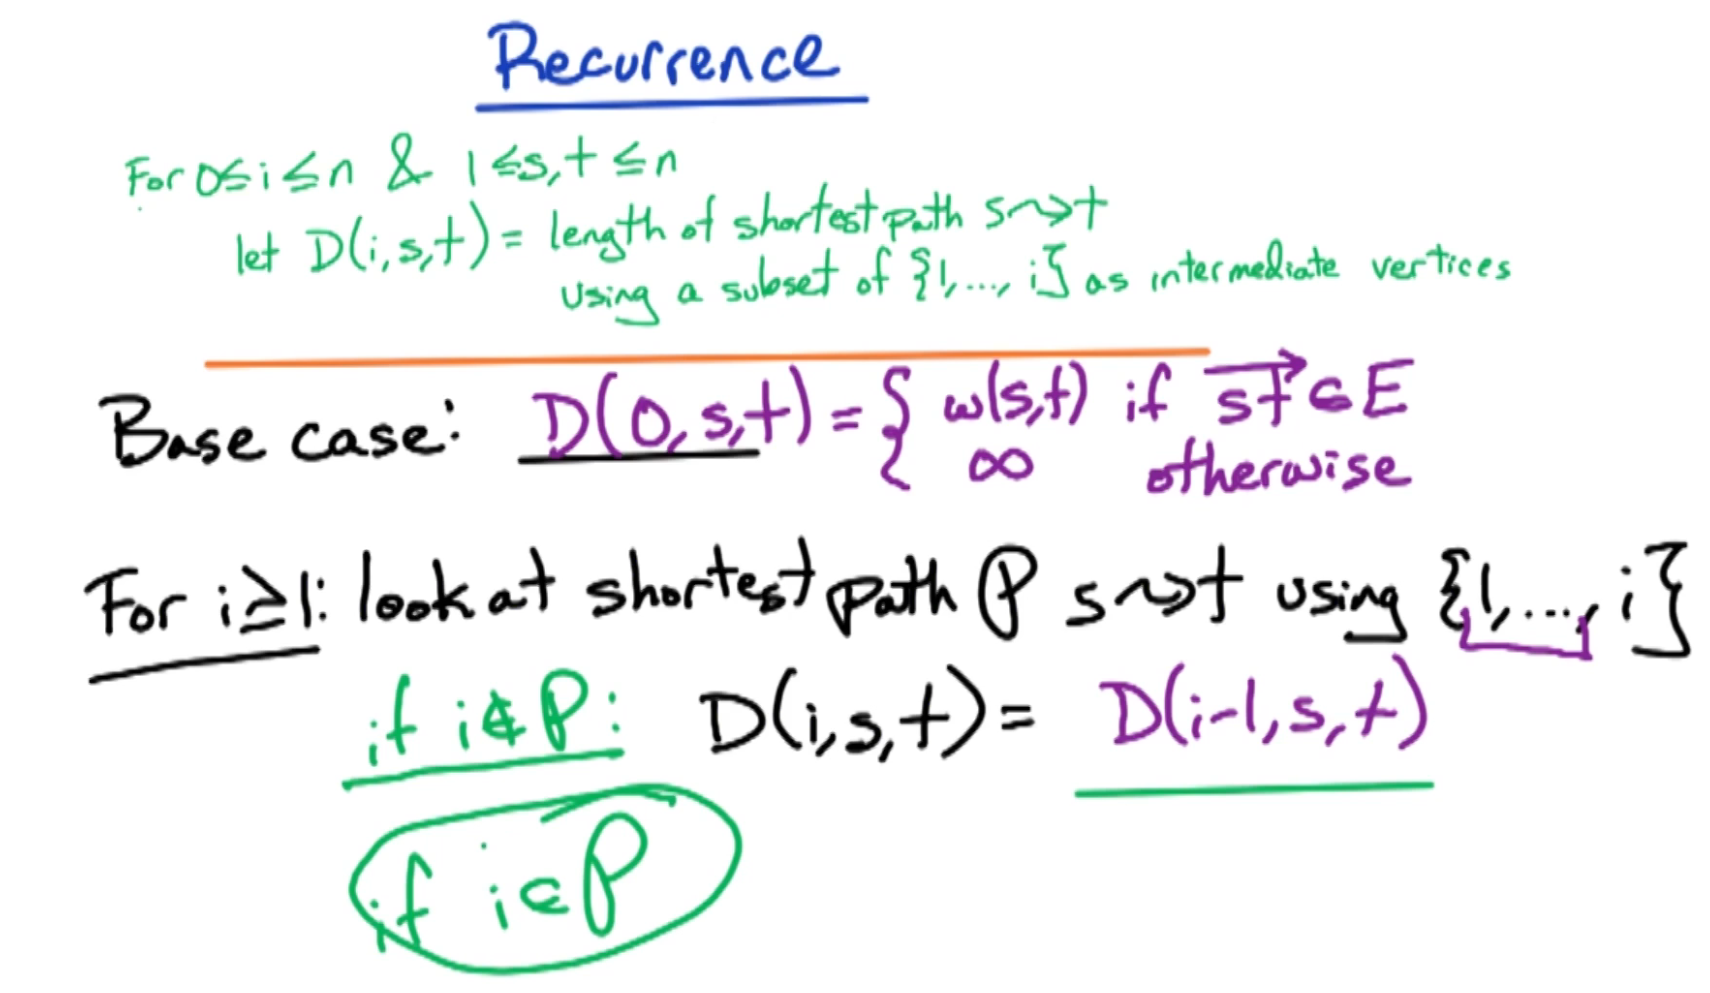 Recurrence
For 0≤i≤n & 1≤s,t≤n
let D(i,s,t) = length of shortest path s⇝t
using a subset of {1,...,i} as intermediate vertices
Base case: D(0,s,t) = { w(s,t) if st→ ∈ E
∞ otherwise
For i≥1: look at shortest path P s⇝t using {1,...,i}
if i∉P: D(i,s,t) = D(i-1,s,t)
if i∈P